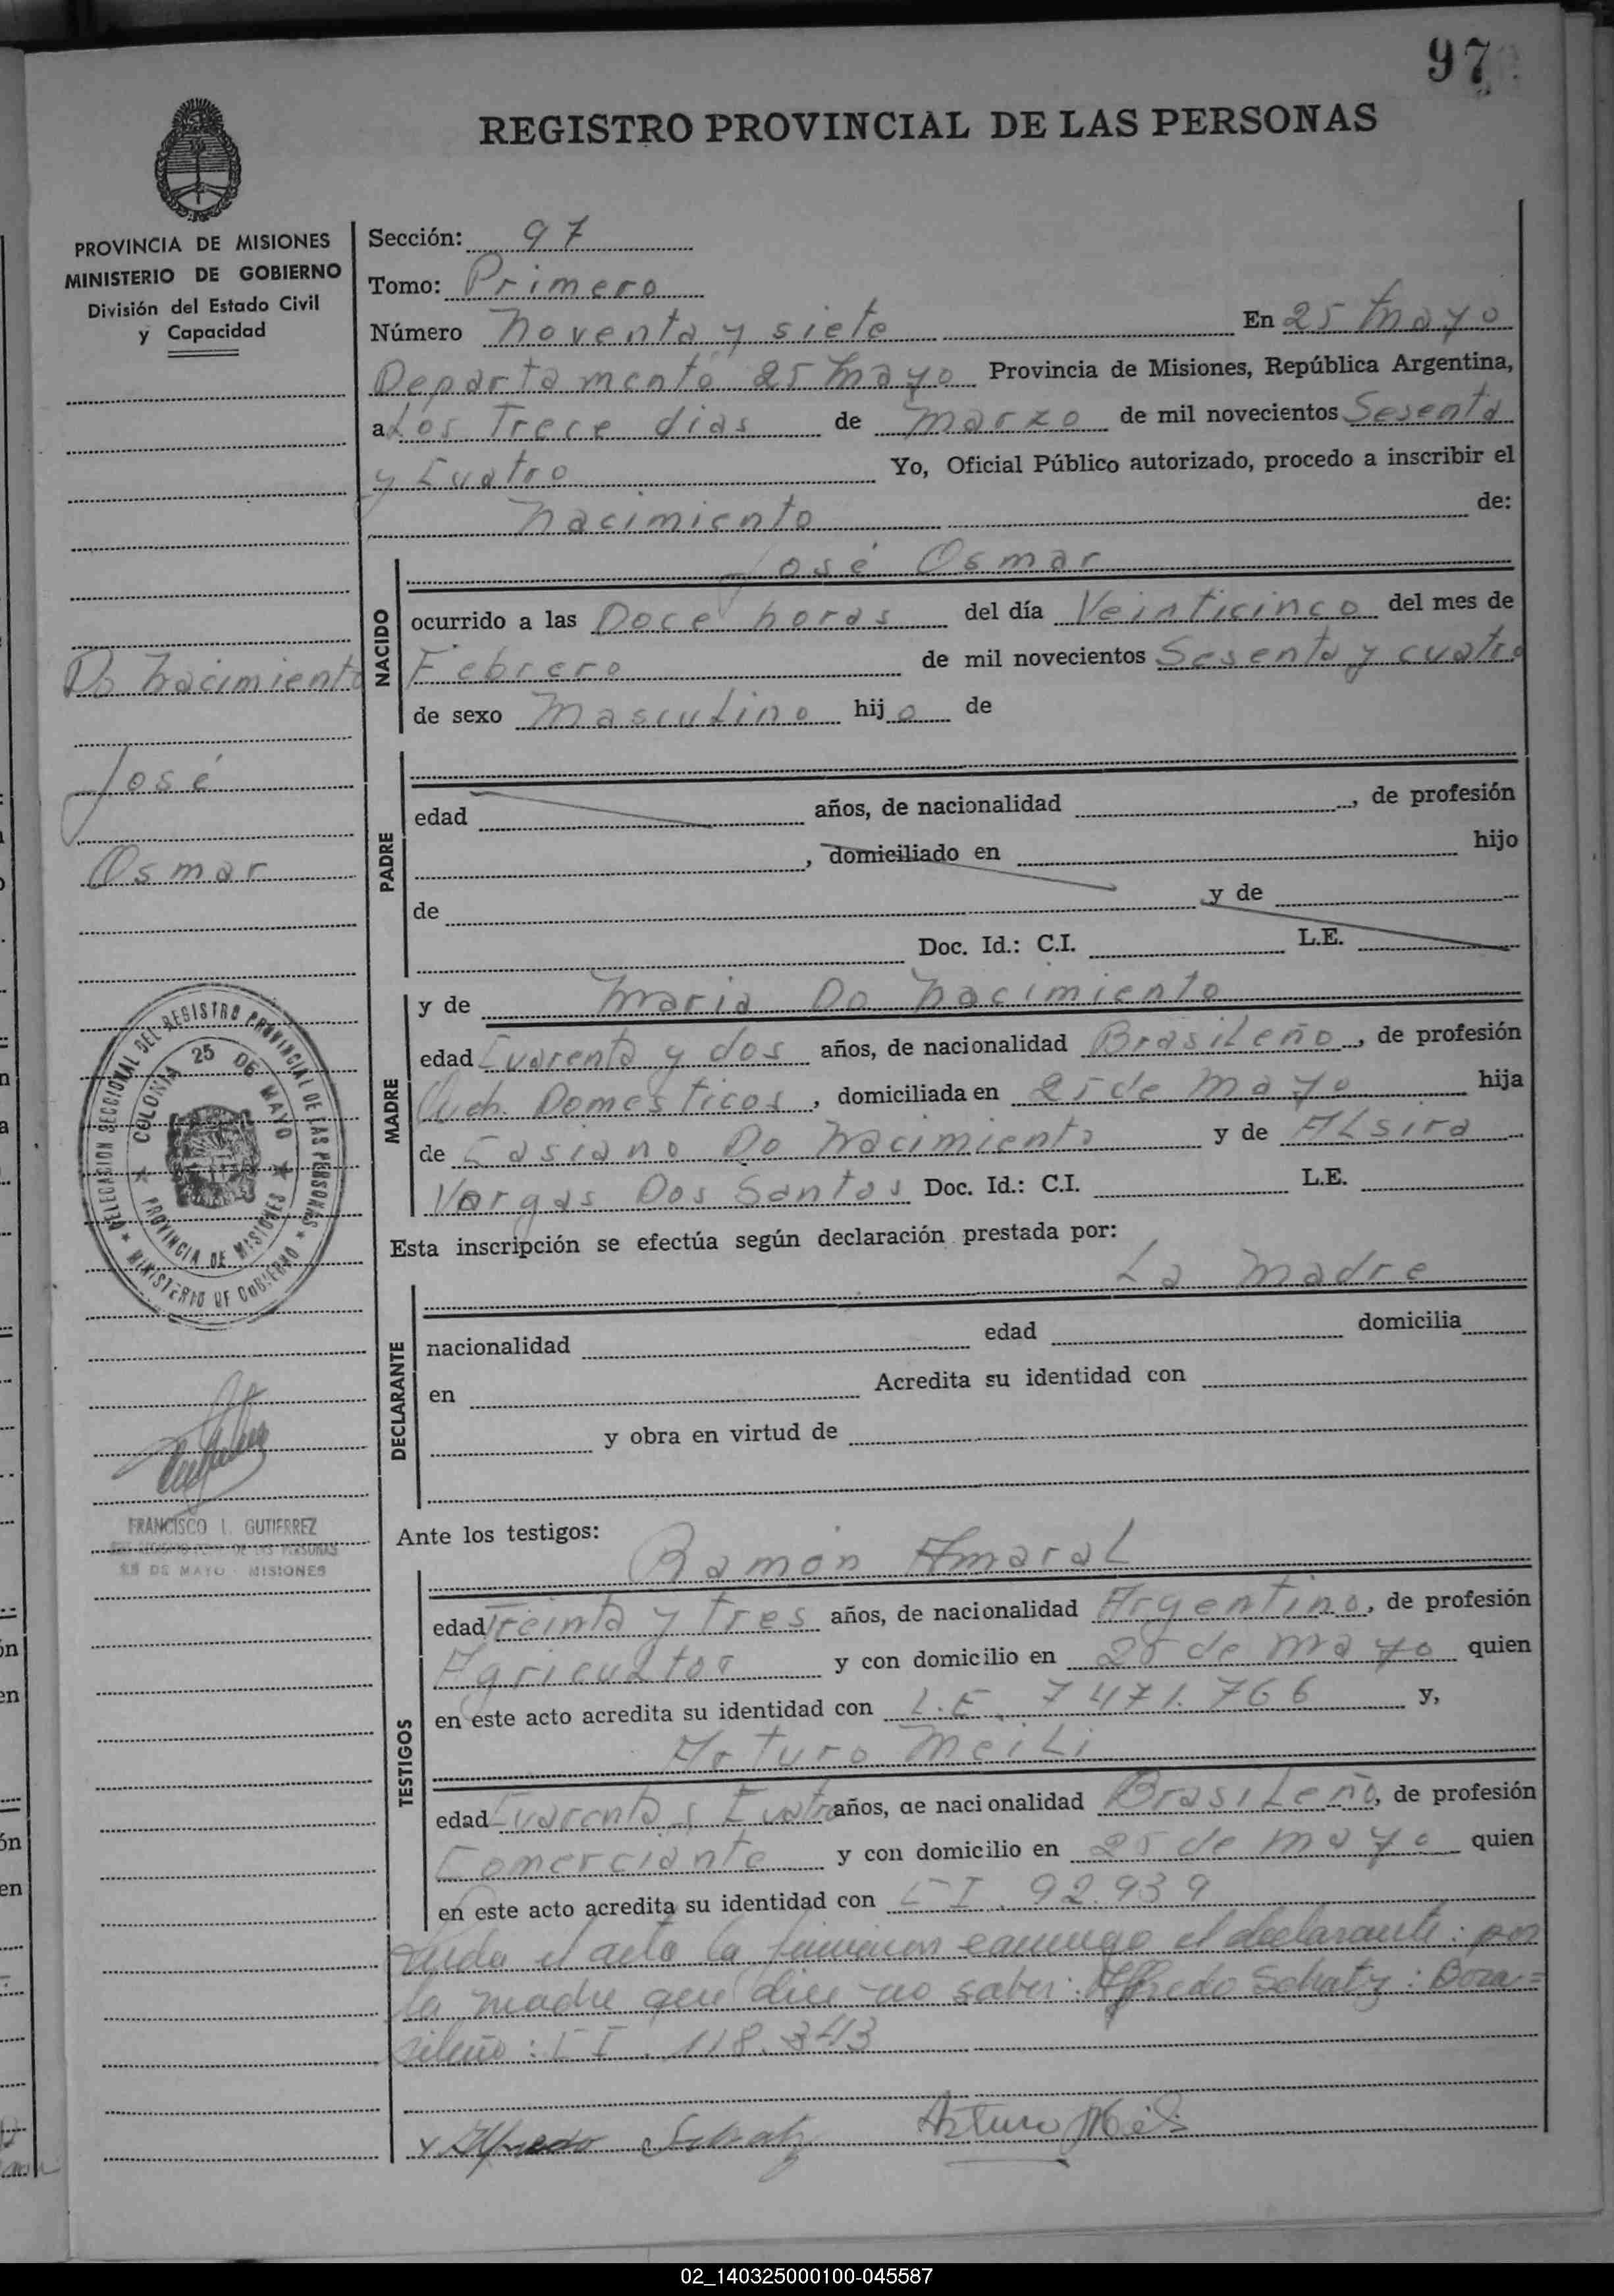 97
REGISTRO PROVINCIAL DE LAS PERSONAS
PROVINCIA DE MISIONES
MINISTERIO DE GOBIERNO
División del Estado Civil
y Capacidad
Sección: 97
Tomo: Primero
Número Noventa y siete En 25 Mayo
Departamento 25 Mayo Provincia de Misiones, República Argentina,
a Los Trece dias de Marzo de mil novecientos Sesenta
y Cuatro Yo, Oficial Público autorizado, procedo a inscribir el
Nacimiento de:
Do Nacimiento
José
Osmar
NACIDO
José Osmar
ocurrido a las Doce horas del día Veinticinco del mes de
Febrero de mil novecientos Sesenta y cuatro
de sexo Masculino hijo de
PADRE
edad años, de nacionalidad , de profesión
, domiciliado en hijo
de y de
Doc. Id.: C.I. L.E.
MADRE
y de Maria Do Nacimiento
edad Cuarenta y dos años, de nacionalidad Brasileño, de profesión
Queh. Domesticos, domiciliada en 25 de Mayo hija
de Casiano Do Nacimiento y de Alsira
Vargas Dos Santos Doc. Id.: C.I. L.E.
Esta inscripción se efectúa según declaración prestada por:
La Madre
DECLARANTE
nacionalidad edad domicilia
en Acredita su identidad con
y obra en virtud de
DELEGACION SECCIONAL DEL REGISTRO PROVINCIAL DE LAS PERSONAS
MINISTERIO DE GOBIERNO
COLONIA 25 DE MAYO
PROVINCIA DE MISIONES
FRANCISCO I. GUTIERREZ
DE LAS PERSONAS
25 DE MAYO MISIONES
Ante los testigos:
Ramon Amaral
TESTIGOS
edad Treinta y Tres años, de nacionalidad Argentino, de profesión
Agricultor y con domicilio en 25 de Mayo quien
en este acto acredita su identidad con L.E. 7471.766 y,
Arturo Meili
edad Cuarenta y Cuatro años, de nacionalidad Brasileño, de profesión
Comerciante y con domicilio en 25 de Mayo quien
en este acto acredita su identidad con C I. 92.939
el acto la conmigo el declarante: por
la madre que dice no saber: Alfredo Schatz: Bra=
sileño: C I. 118.343
x Alfredo Schatz Arturo Meili
02_140325000100-045587